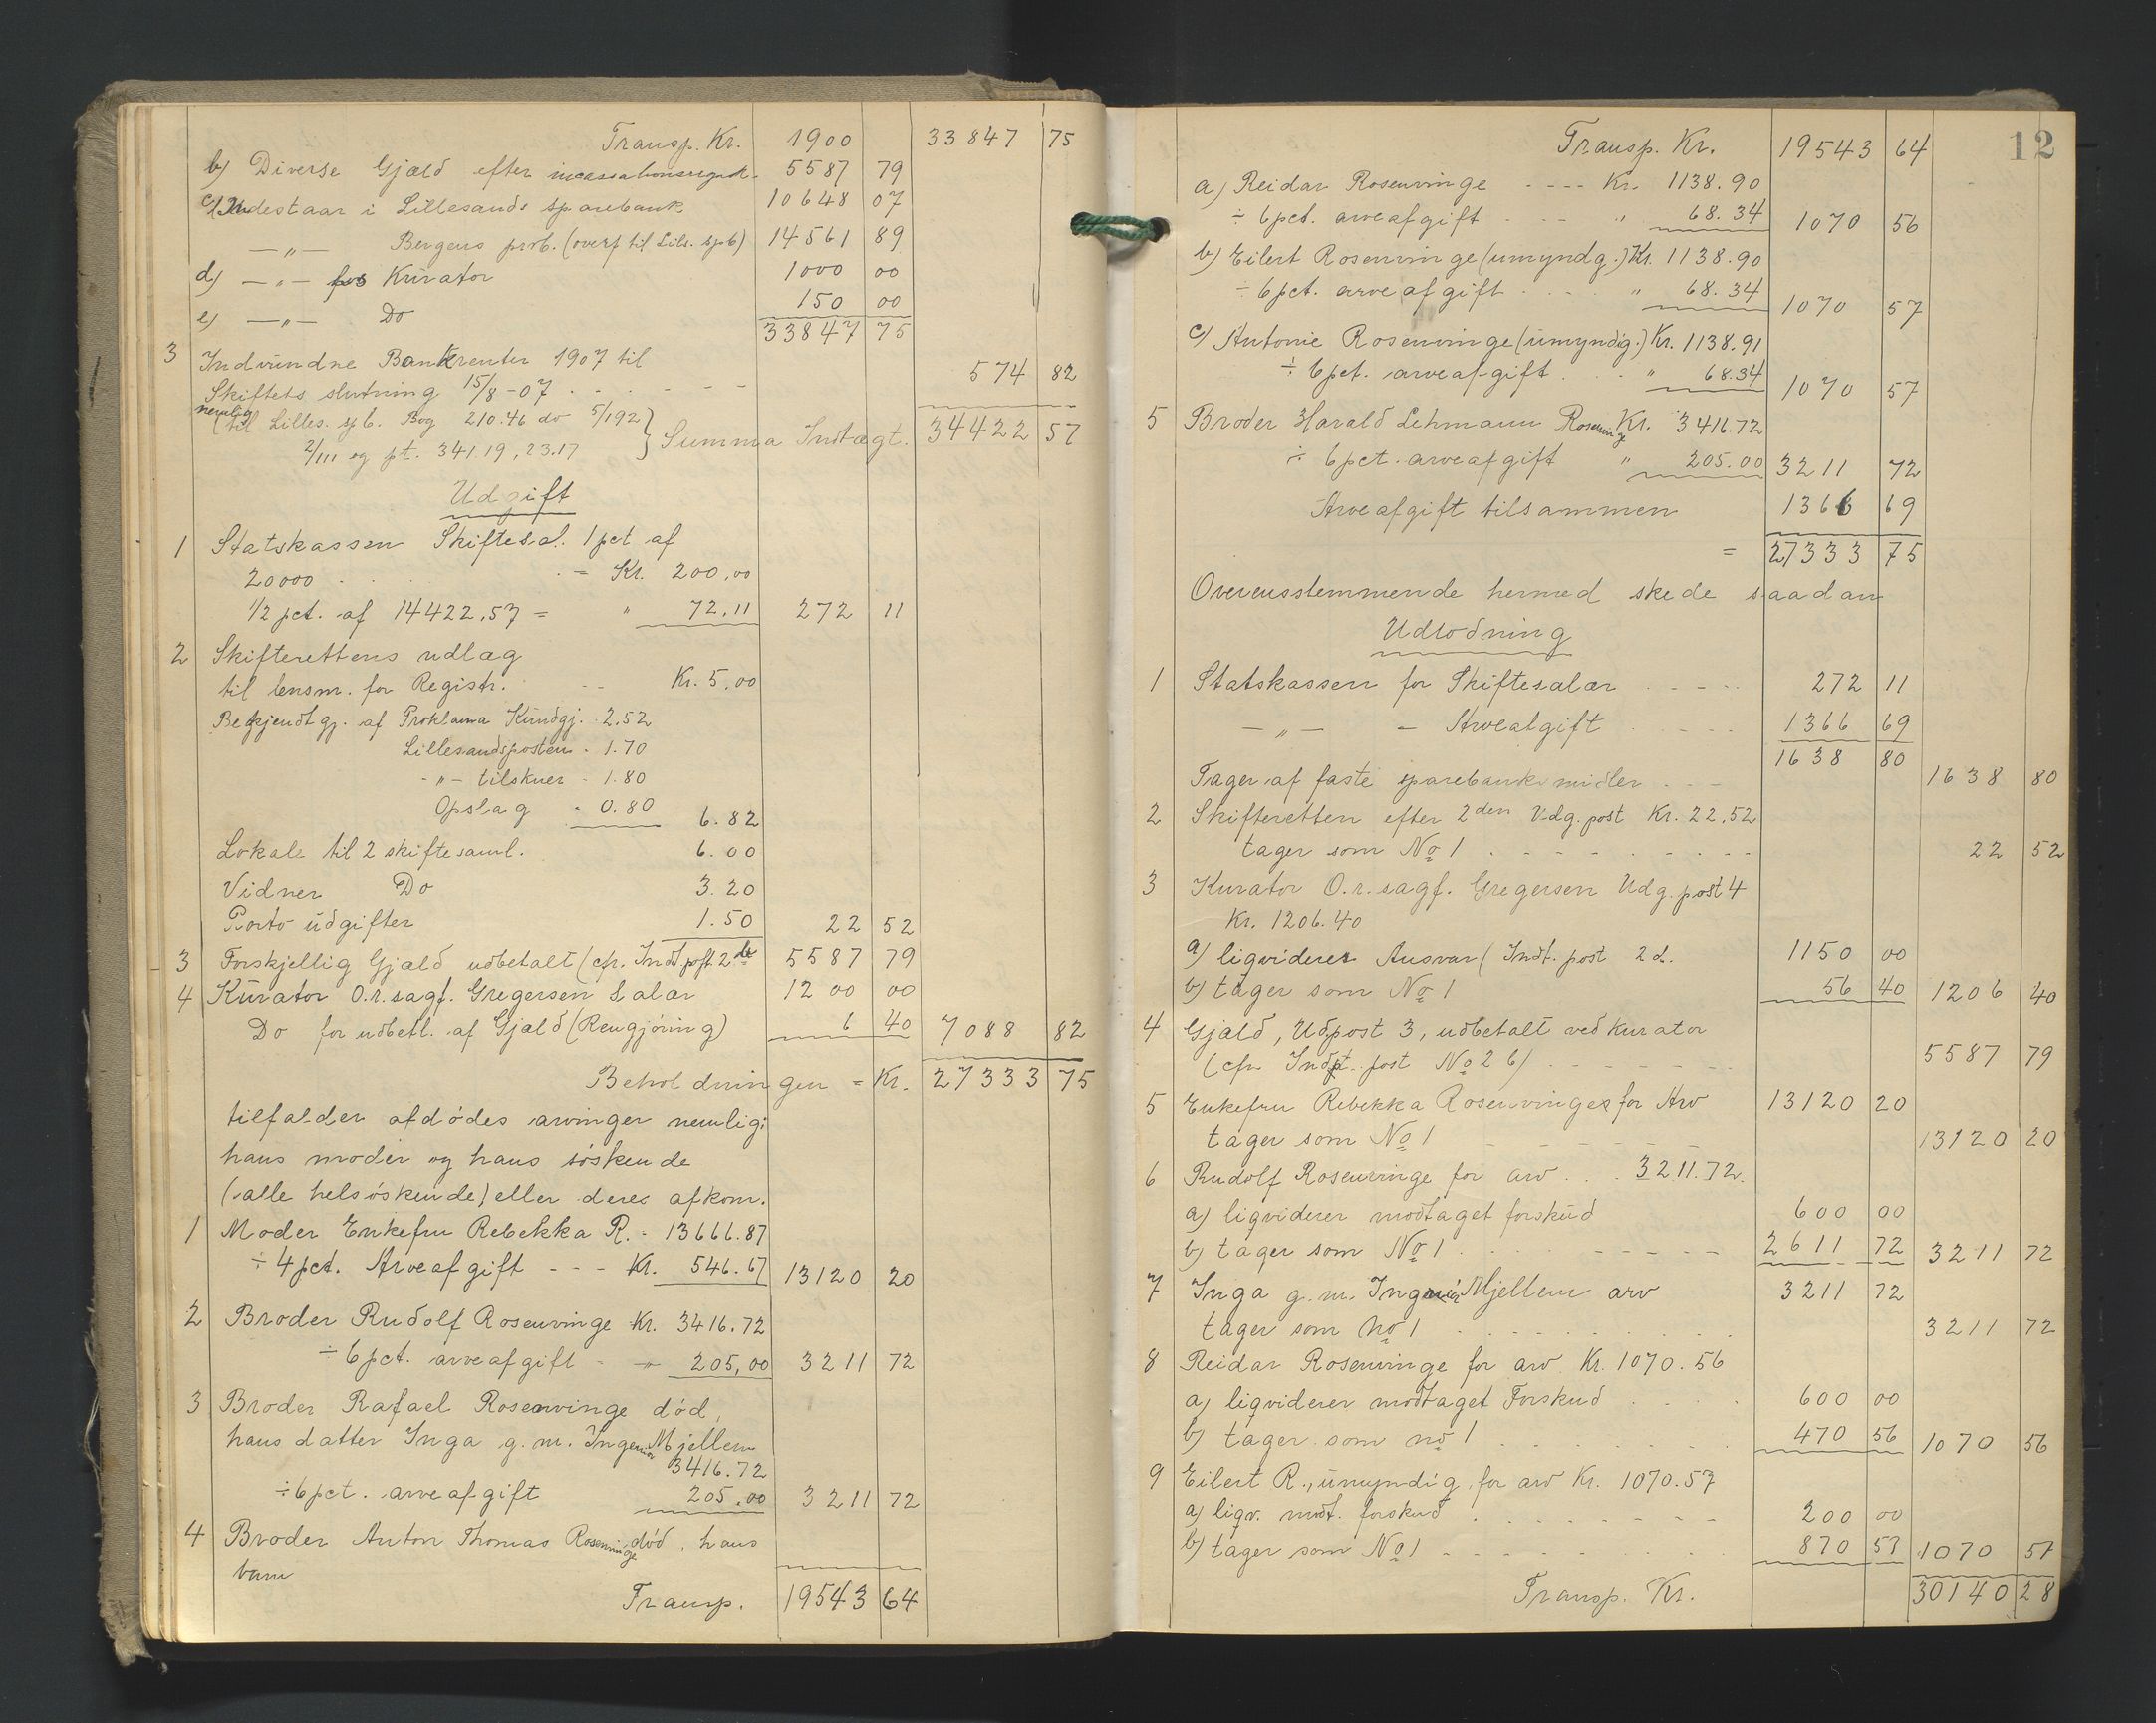 Transp. Kr. 1900 33847 75
b) Diverse Gjæld efter 5587 79
c) Indestaar i Lillesands sparebank 10648 07
—"— Bergens prob. (overf til Lils. spb) 14561 89
d) —"— hos Kurator 1000 00
e) —"— Do 150 00
33847 75
3 Indvundne Bankrenter 1907 til
Skiftets slutning 15/8-07 . . - - - 574 82
nemlig
(til Lilles. spb. Bog 210.46 do 5/192 } Summa Indtægt. 34422 57
2/111 og pt. 341.19, 23.17
Udgift
1 Statskassen Skiftesal. 1 pct af
20000 . . . = Kr. 200.00
1/2 pct. af 14422.57 = " 72.11 272 11
2 Skifterettens udlæg
til lensm. for Registr. - - Kr. 5.00
Bekjendtgj. af Proklama Kundgj. - 2.52
Lillesandsposten - 1.70
-"- tilskuer - 1.80
Opslag - 0.80 6.82
Lokale til 2 skiftesaml. 6.00
Vidner Do 3.20
Porto udgifter 1.50 22 52
3 Forskjellig Gjæld udbetalt (cfr. Indt post 2 b 5587 79
4 Kurator O.r.sagf. Gregersen Salær 1200 00
Do for udbetl. af Gjæld (Rengjöring) 6 40 7088 82
Beholdningen = Kr. 27333 75
tilfalder afdödes arvinger nemlig:
hans moder og hans söskende
(alle helsöskende) eller deres afkom.
1 Moder Enkefru Rebekka R. - 13666.87
÷ 4 pct. Arveafgift - - - Kr. 546.67 13120 20
2 Broder Rudolf Rosenvinge Kr. 3416.72
÷ 6 pct. arveafgift - -"- 205,00 3211 72
3 Broder Rafael Rosenvinge död,
hans datter Inga g. m. Ingeniör Mjellem
3416.72
÷ 6 pct. arveafgift 205.00 3211 72
4 Broder Anton Thomas Rosenvinge död, hans
barn
Transp. 19543 64
12
Transp. Kr. 19543 64
a) Reidar Rosenvinge - - - - Kr. 1138.90
÷ 6 pct. arveafgift - - - " 68.34 1070 56
b) Eilert Rosenvinge (umyndg.) Kr. 1138.90
÷ 6 pct. arveafgift . . . " 68.34 1070 57
c) Antonie Rosenvinge (umyndig.) Kr. 1138.91
÷ 6 pct. arveafgift . . " 68.34 1070 57
5 Broder Harald Lehmann Rosenvinge Kr. 3416.72
÷ 6 pct. arveafgift " 205.00 3211 72
Arveafgift tilsammen 1366 69
= 27333 75
Overensstemmende hermed skede saadan
Udlodning
1 Statskassen for Skiftesalær . . . . 272 11
—"— - Arveafgift . . . . 1366 69
1638 80
Tager af faste sparebanksmidler . . - 1638 80
2 Skifteretten efter 2den Udg. post Kr. 22.52
tager som No 1 . - - - - - - - - 22 52
3 Kurator O.r.sagf. Gregersen Udg. post 4
Kr. 1206.40
a) liqviderer Ansvar (Indt. post 2 d. 1150 00
b) tager som No 1 56 40 1206 40
4 Gjæld, Udpost 3, udbetalt ved kurator
(cfr Indpt. post No 2 b) . - - - - - - 5587 79
5 Enkefru Rebekka Rosenvinges for Arv 13120 20
tager som No 1 - - - - - - - 13120 20
6 Rudolf Rosenvinge for arv . . . 3211.72.
a) liqviderer modtaget forskud 600 00
b) tager som No 1 . . . - - - - - 2611 72 3211 72
7 Inga g. m. Ingeniör Mjellem arv 3211 72
tager som No 1 . . . . . . . . 3211 72
8 Reidar Rosenvinge for arv Kr. 1070.56
a) liqviderer modtaget Forskud . . . . 600 00
b) tager som No 1 . . . . . . . 470 56 1070 56
9 Eilert R., umyndig, for arv Kr. 1070.57
a) liqv. modt. forskud . . . . . . - - 200 00
b) tager som No 1 - - . . . . . . 870 57 1070 57
Transp. Kr. 30140 28